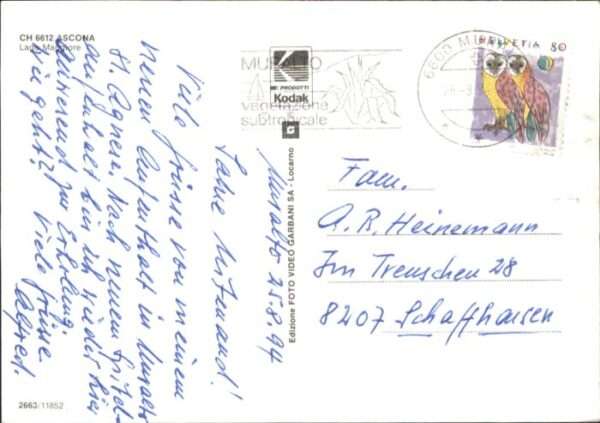 CH 6612 ASCONA
Lago Maggiore
MURALTO
vegetazione
subtropicale
K
PRODOTTI
Kodak
G
6600 MURALTO
HELVETIA 80
Muralto 25.8.94
Viele Grüsse von meinem
neuen Aufenthalt in Muralto
St. Agnese. Nach neuem Spital-
aufenthalt bin ich wieder hier
zur Erholung.
Wie geht's? Viele Grüsse
Alfred.
Fam.
A. R. Heinemann
Im Trenschen 28
8207 Schaffhausen
Edizione FOTO VIDEO GARBANI SA - Locarno
2663/11852